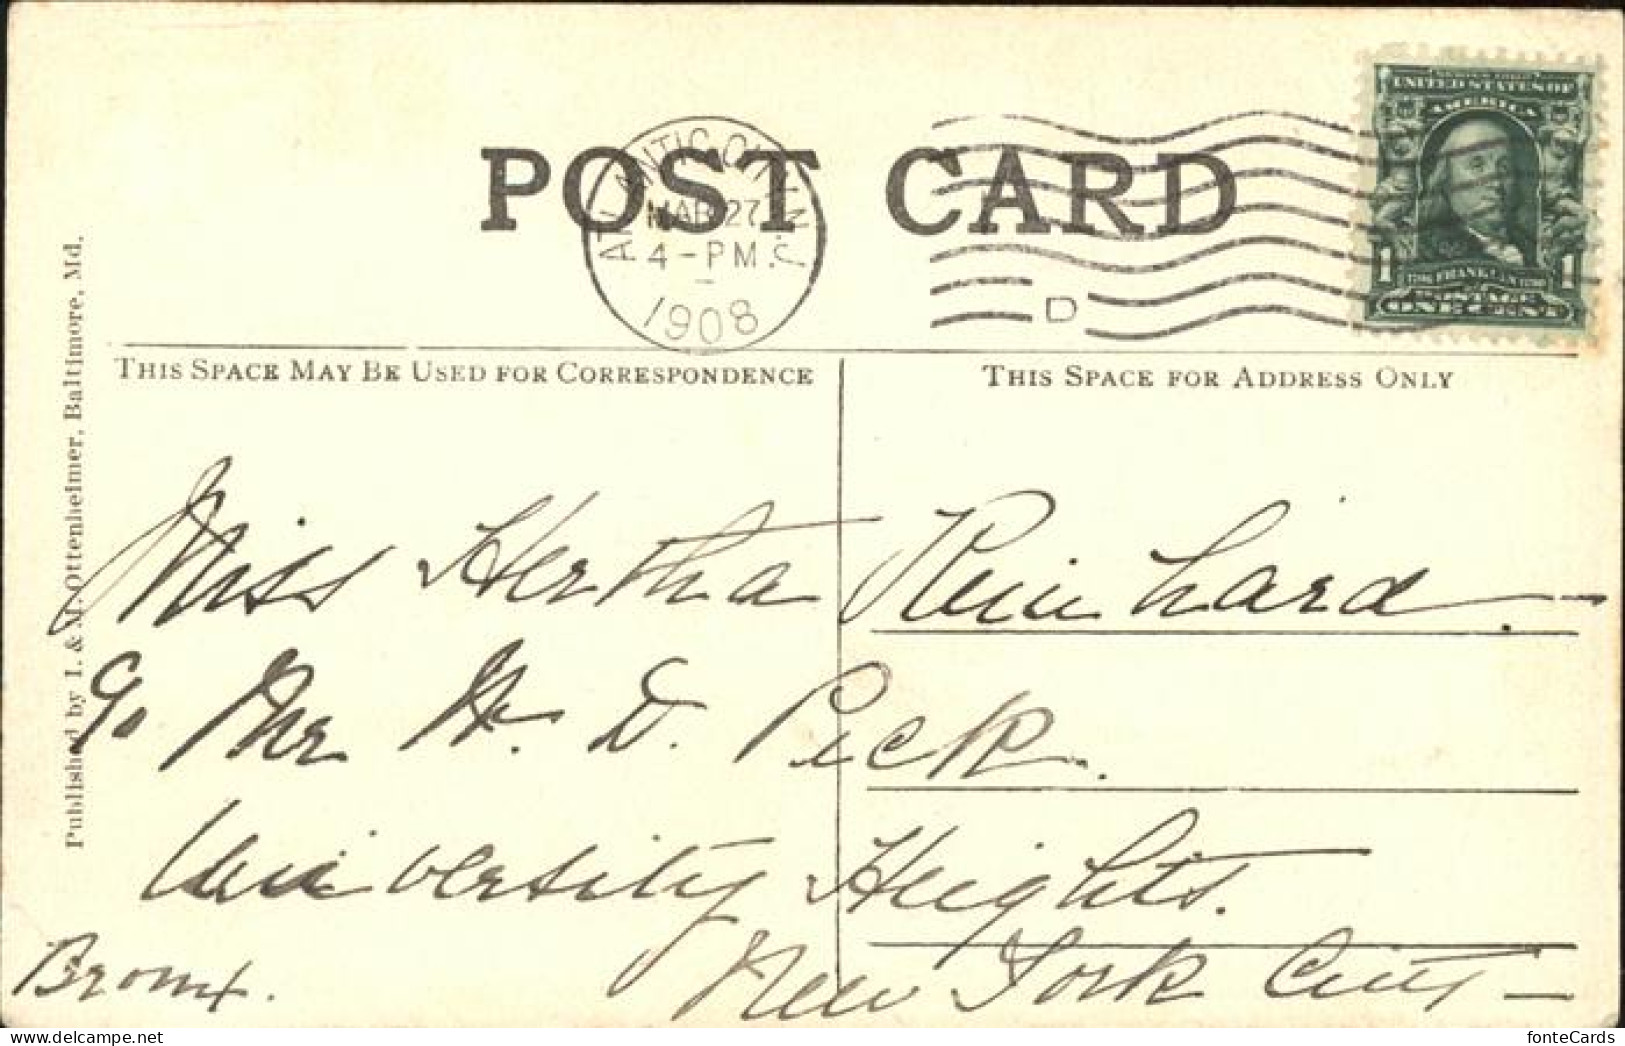 POST CARD
ATLANTIC CITY, N.J.
MAR 27
4 - PM.
1908
D
SERIES 1902
UNITED STATES OF
AMERICA
1 1
FRANKLIN
POSTAGE
ONE CENT
THIS SPACE MAY BE USED FOR CORRESPONDENCE
THIS SPACE FOR ADDRESS ONLY
Published by I. & M. Ottenheimer, Baltimore, Md.
Miss Hertha Reinhard.
c/o Mr W. D. Peck.
University Heights.
Bronx. New York City
fonteCards